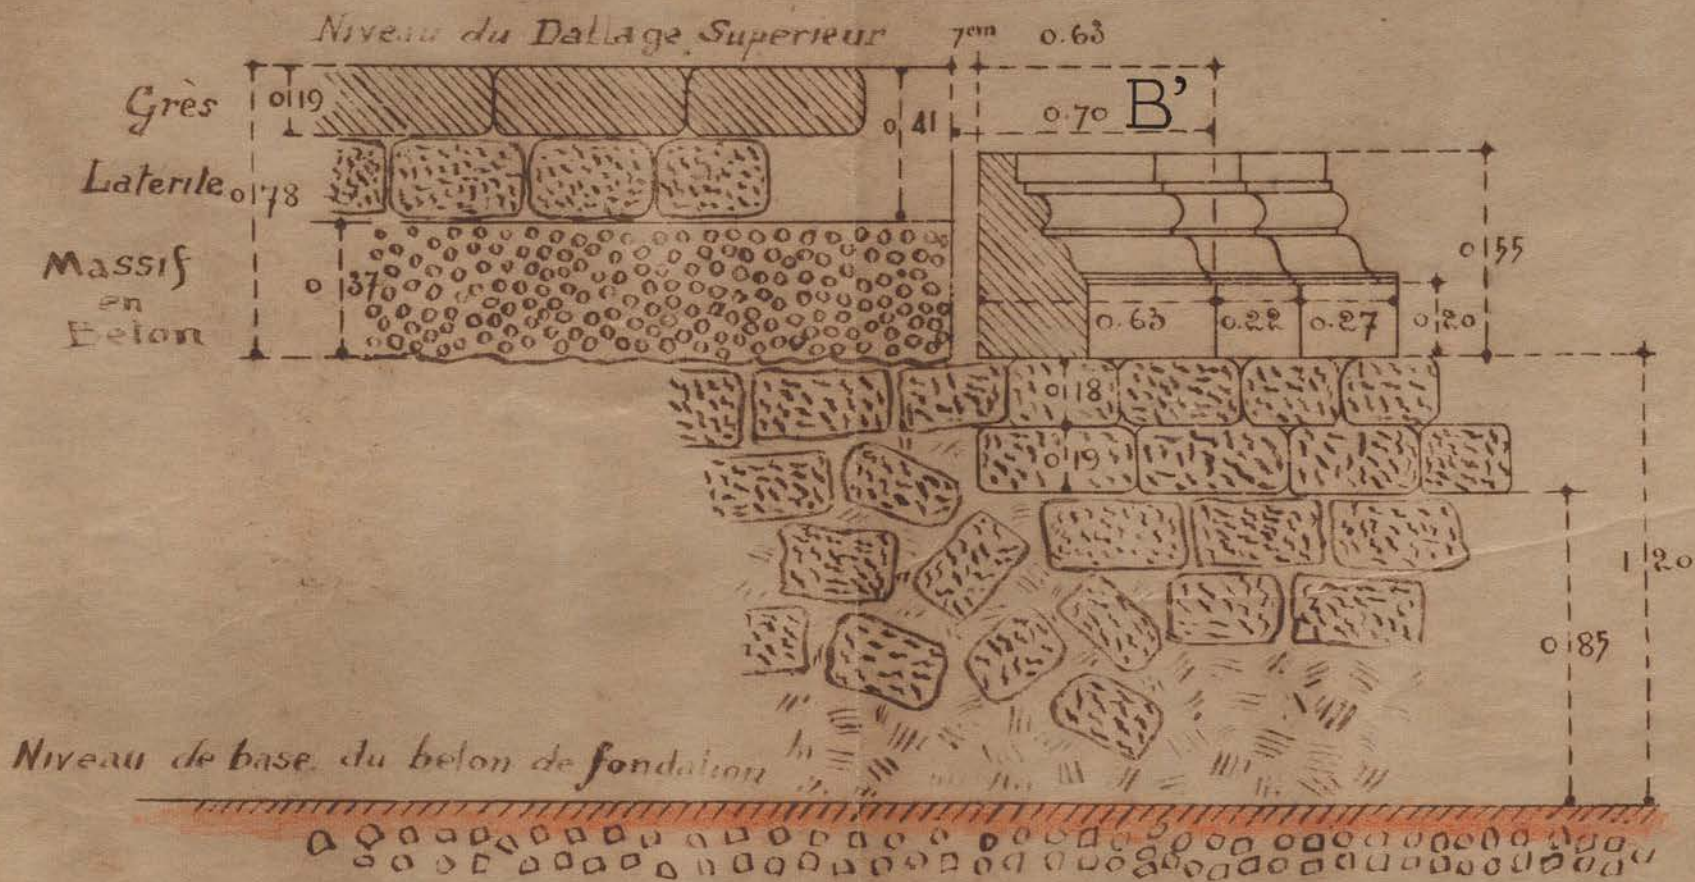 Niveau du Dallage Superieur
7cm 0.63
Grès
0 19
0 41
0.70 B'
Laterite
0 78
Massif
en
Beton
0 37
0 55
0.63 0.22 0.27 0 20
0 18
0 19
1 20
0 85
Niveau de base du beton de fondation